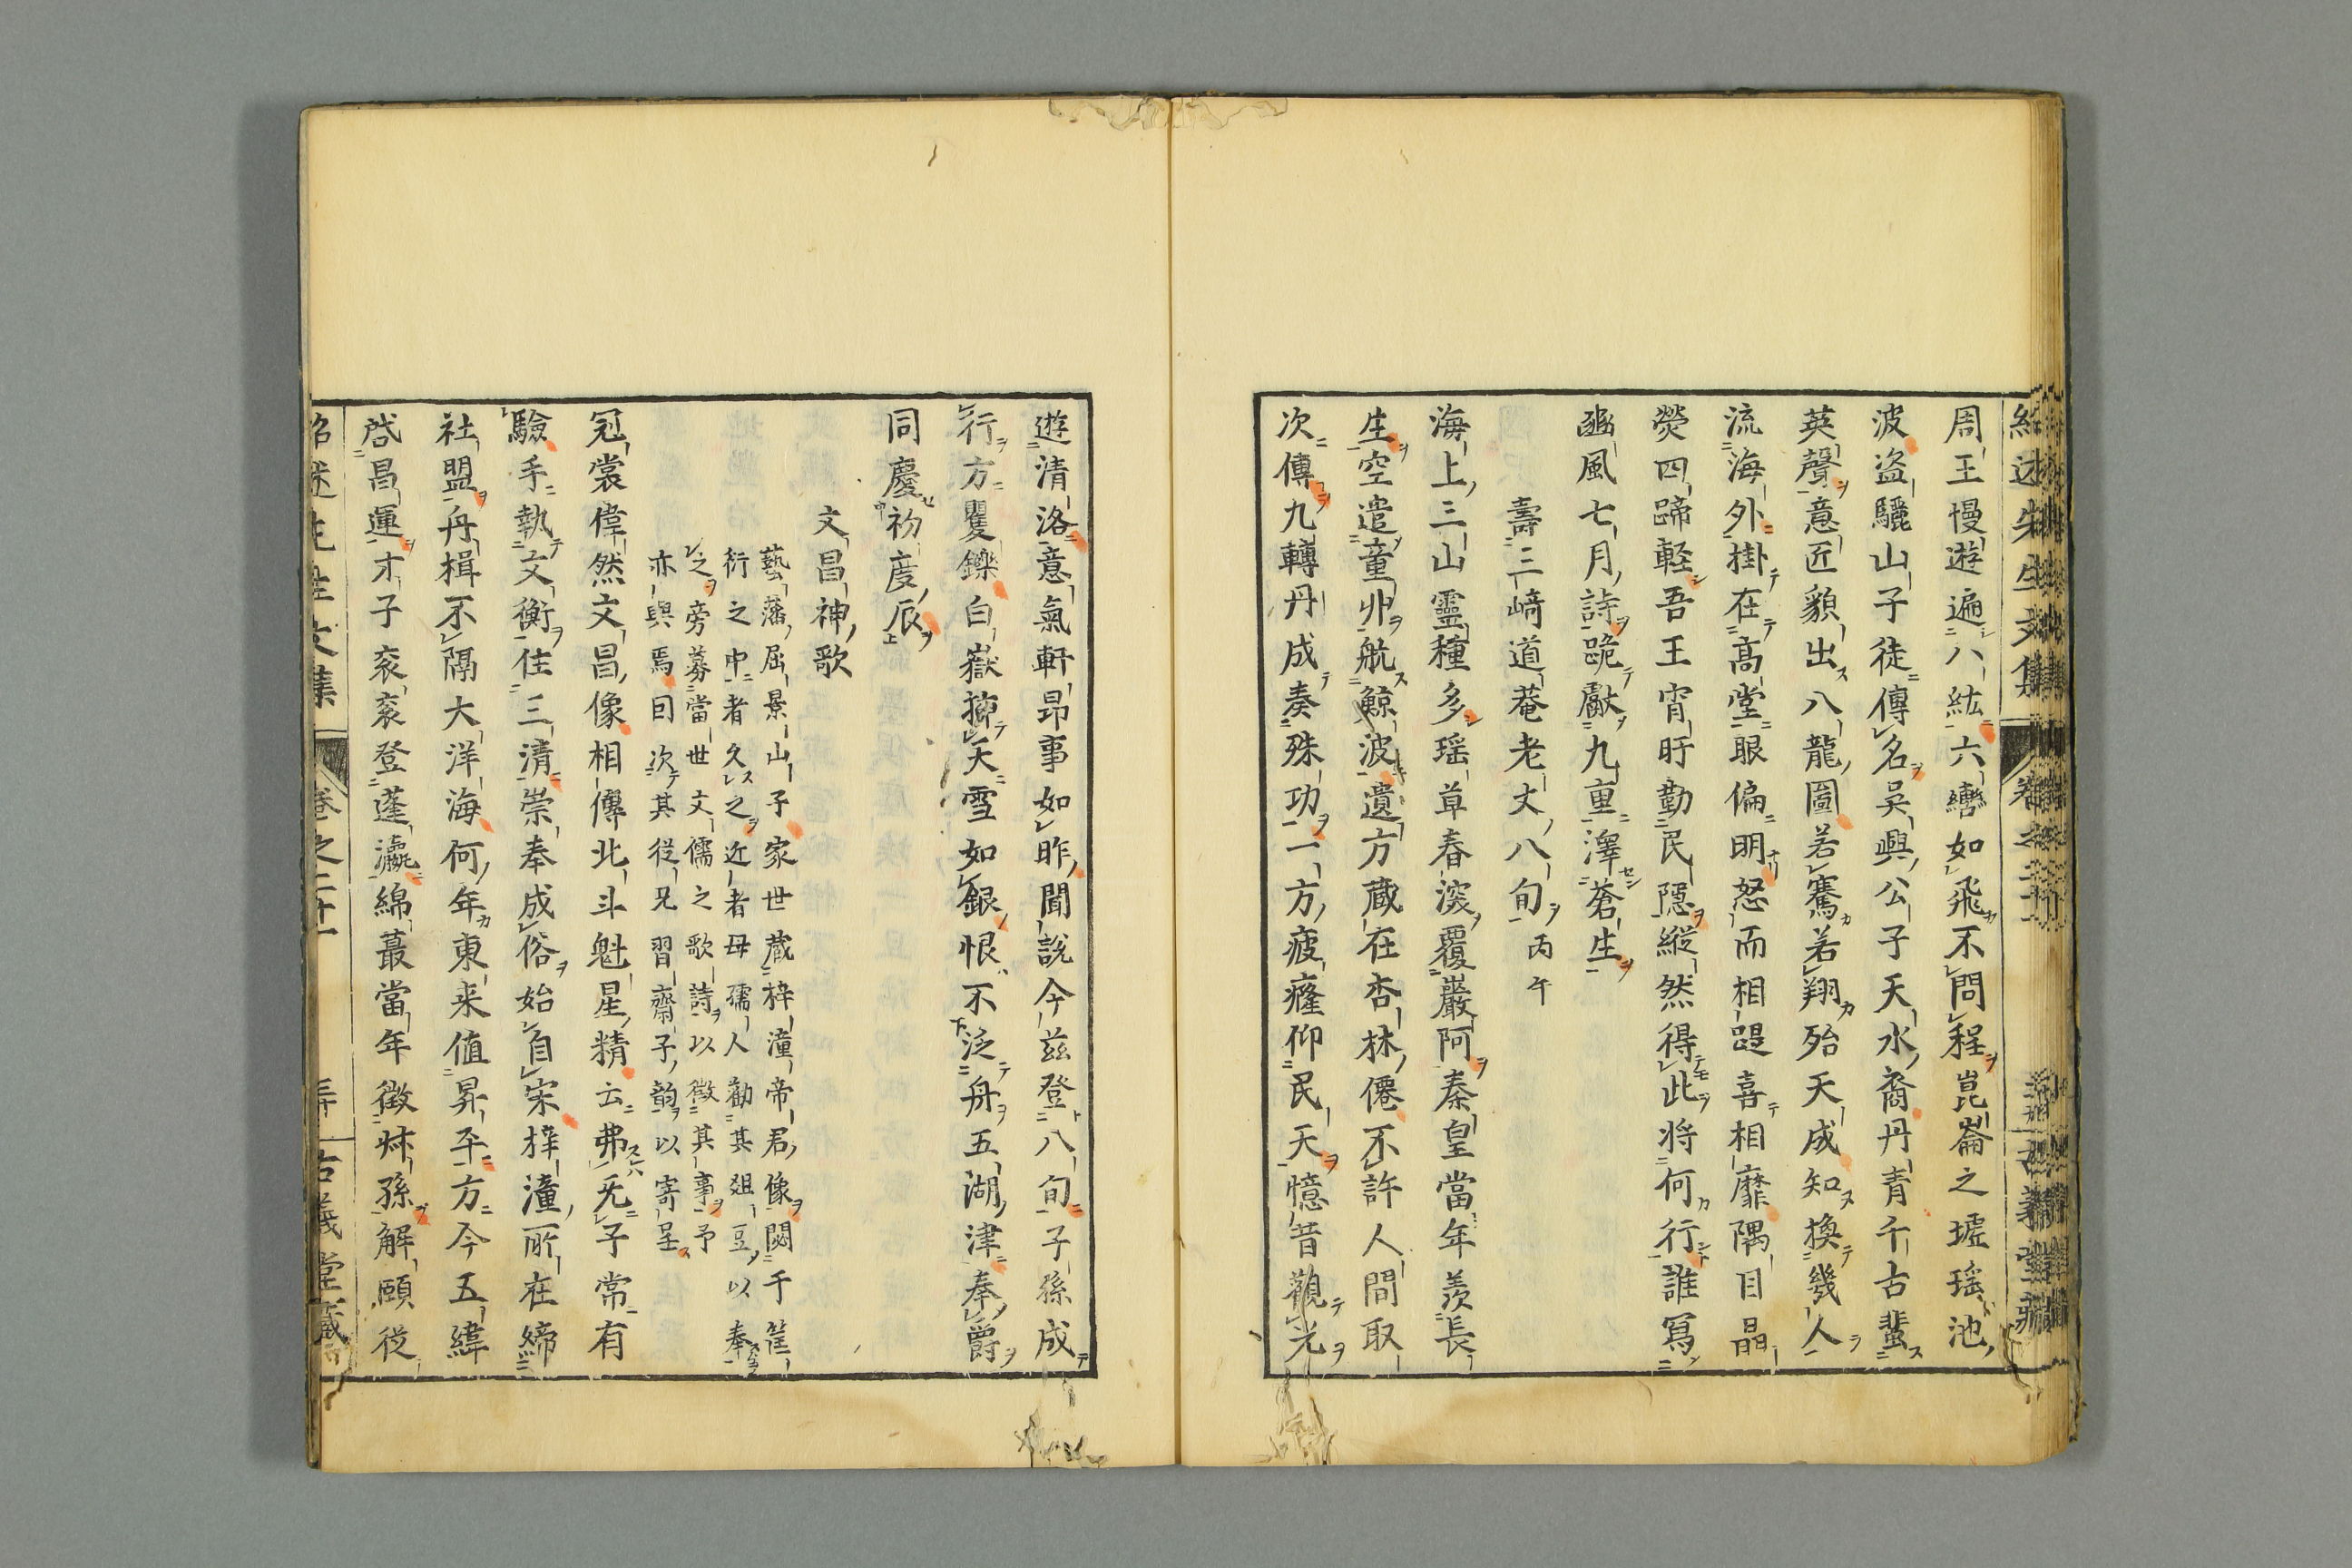 周王慢遊遍八紘六轡如飛不問程崑崙之墟瑶池
波盗驪山子徒傳名吳興公子天水裔丹青千古蜚
英聲意匠貌出八龍圖若騫若翔殆天成知換幾人
流海外掛在髙堂眼偏明怒而相踶喜相靡隅目晶
熒四蹄軽吾王宵旰勤民隱縦然得此将何行誰冩
豳風七月詩跪獻九重澤蒼生
壽三﨑道菴老丈八旬丙午
海上三山靈種多瑶草春深覆巖阿秦皇當年羨長
生空遣童丱航鯨波遺方蔵在杏林僊不許人間取
次傳九轉丹成奏殊功一方疲癃仰民天憶昔觀光
遊清洛意氣軒昂事如昨聞說今茲登八旬子孫成
行方瞿鑠白嶽掠天雪如銀恨不泛舟五湖津奉爵
同慶初度辰
文昌神歌
藝藩屈景山子家世蔵梓潼帝君像閟千筐
衍之中者久之近者母孺人勸其爼豆以奉
之旁募當世文儒之歌詩以徴其事予
亦與焉因次其従兄習齋子韵以寄呈
冠裳偉然文昌像相傳北斗魁星精云弗无子常有
驗手執文衡住三清崇奉成俗始自宋梓潼所在締
社盟舟楫不隔大洋海何年東来値昇平方今五緯
啓昌運才子衮衮登蓬瀛綿蕞當年徴牀孫解頤従
紹述先生文集
卷之二十一
古義堂藏